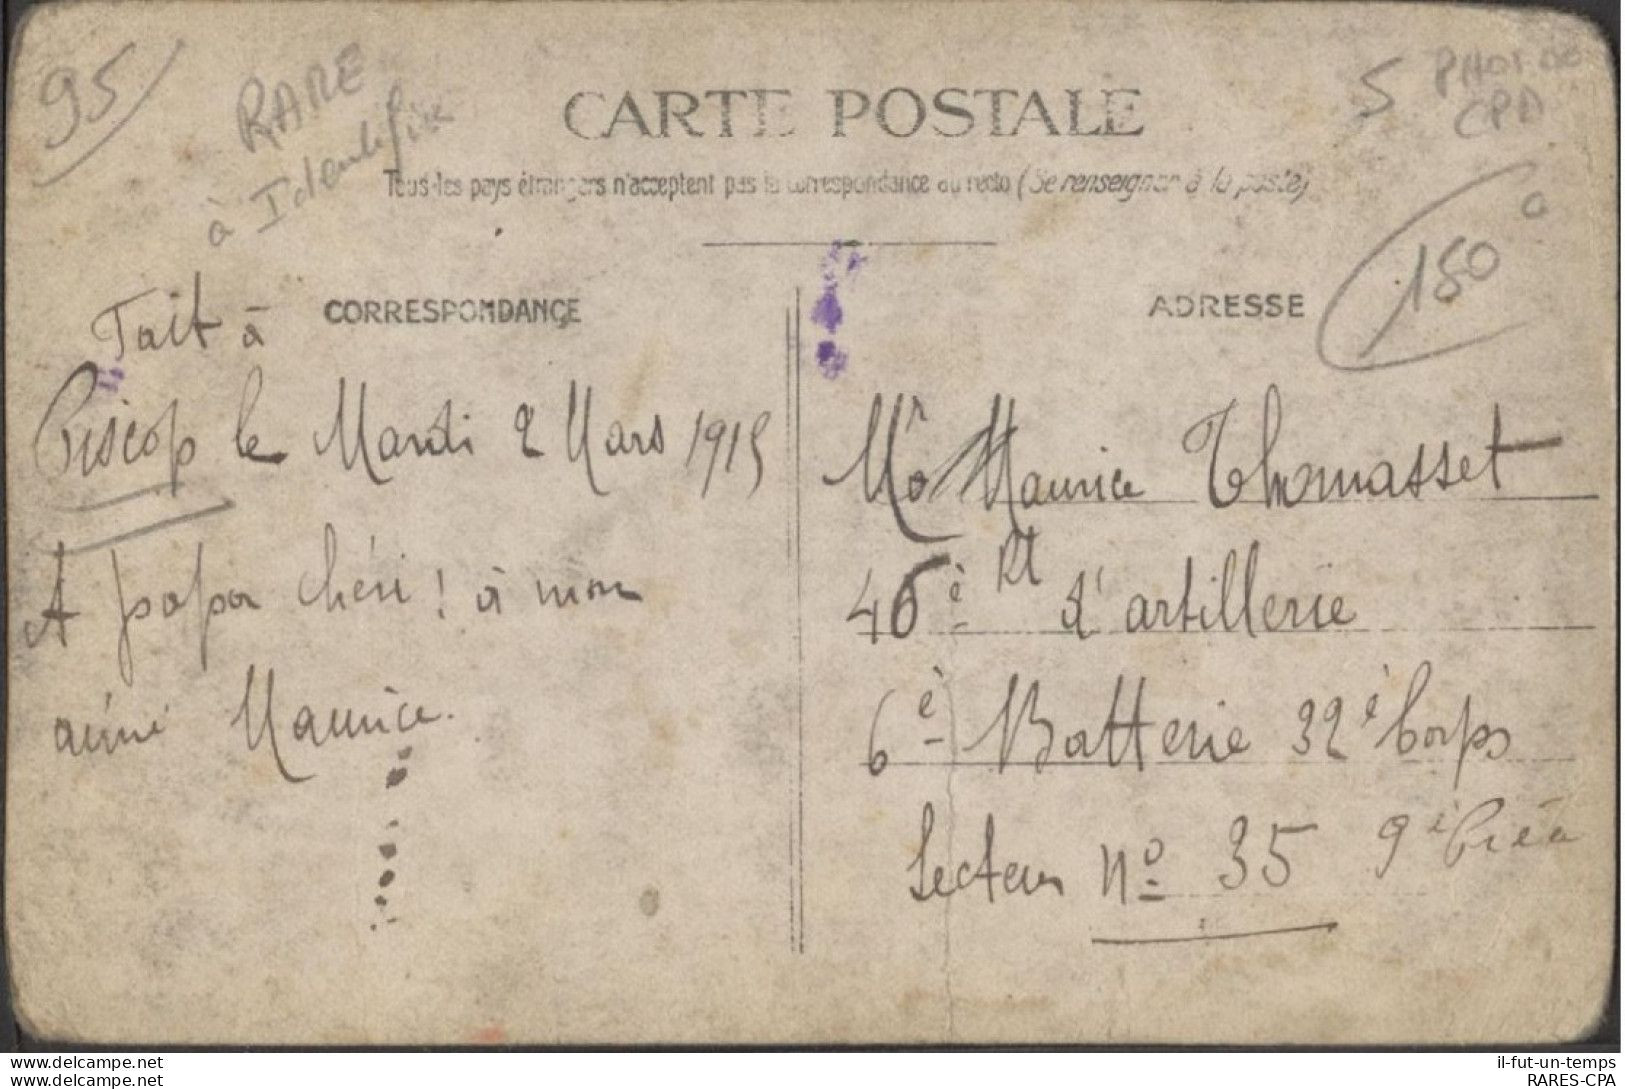 95
RARE
à Identifier
5 PHOT DE
CPA
CARTE POSTALE
Tous les pays étrangers n'acceptent pas la correspondance au recto (Se renseigner à la poste)
150
CORRESPONDANCE
ADRESSE
Fait à
Piscop le Mardi 2 Mars 1915
A papa chéri ! à mon
aimé Maurice.
Mr Maurice Thomasset
46è Rt d'artillerie
6è Batterie 32è Corps
Secteur no 35 9è
il-fut-un-temps
RARES-CPA
delcampe.net
delcampe.net